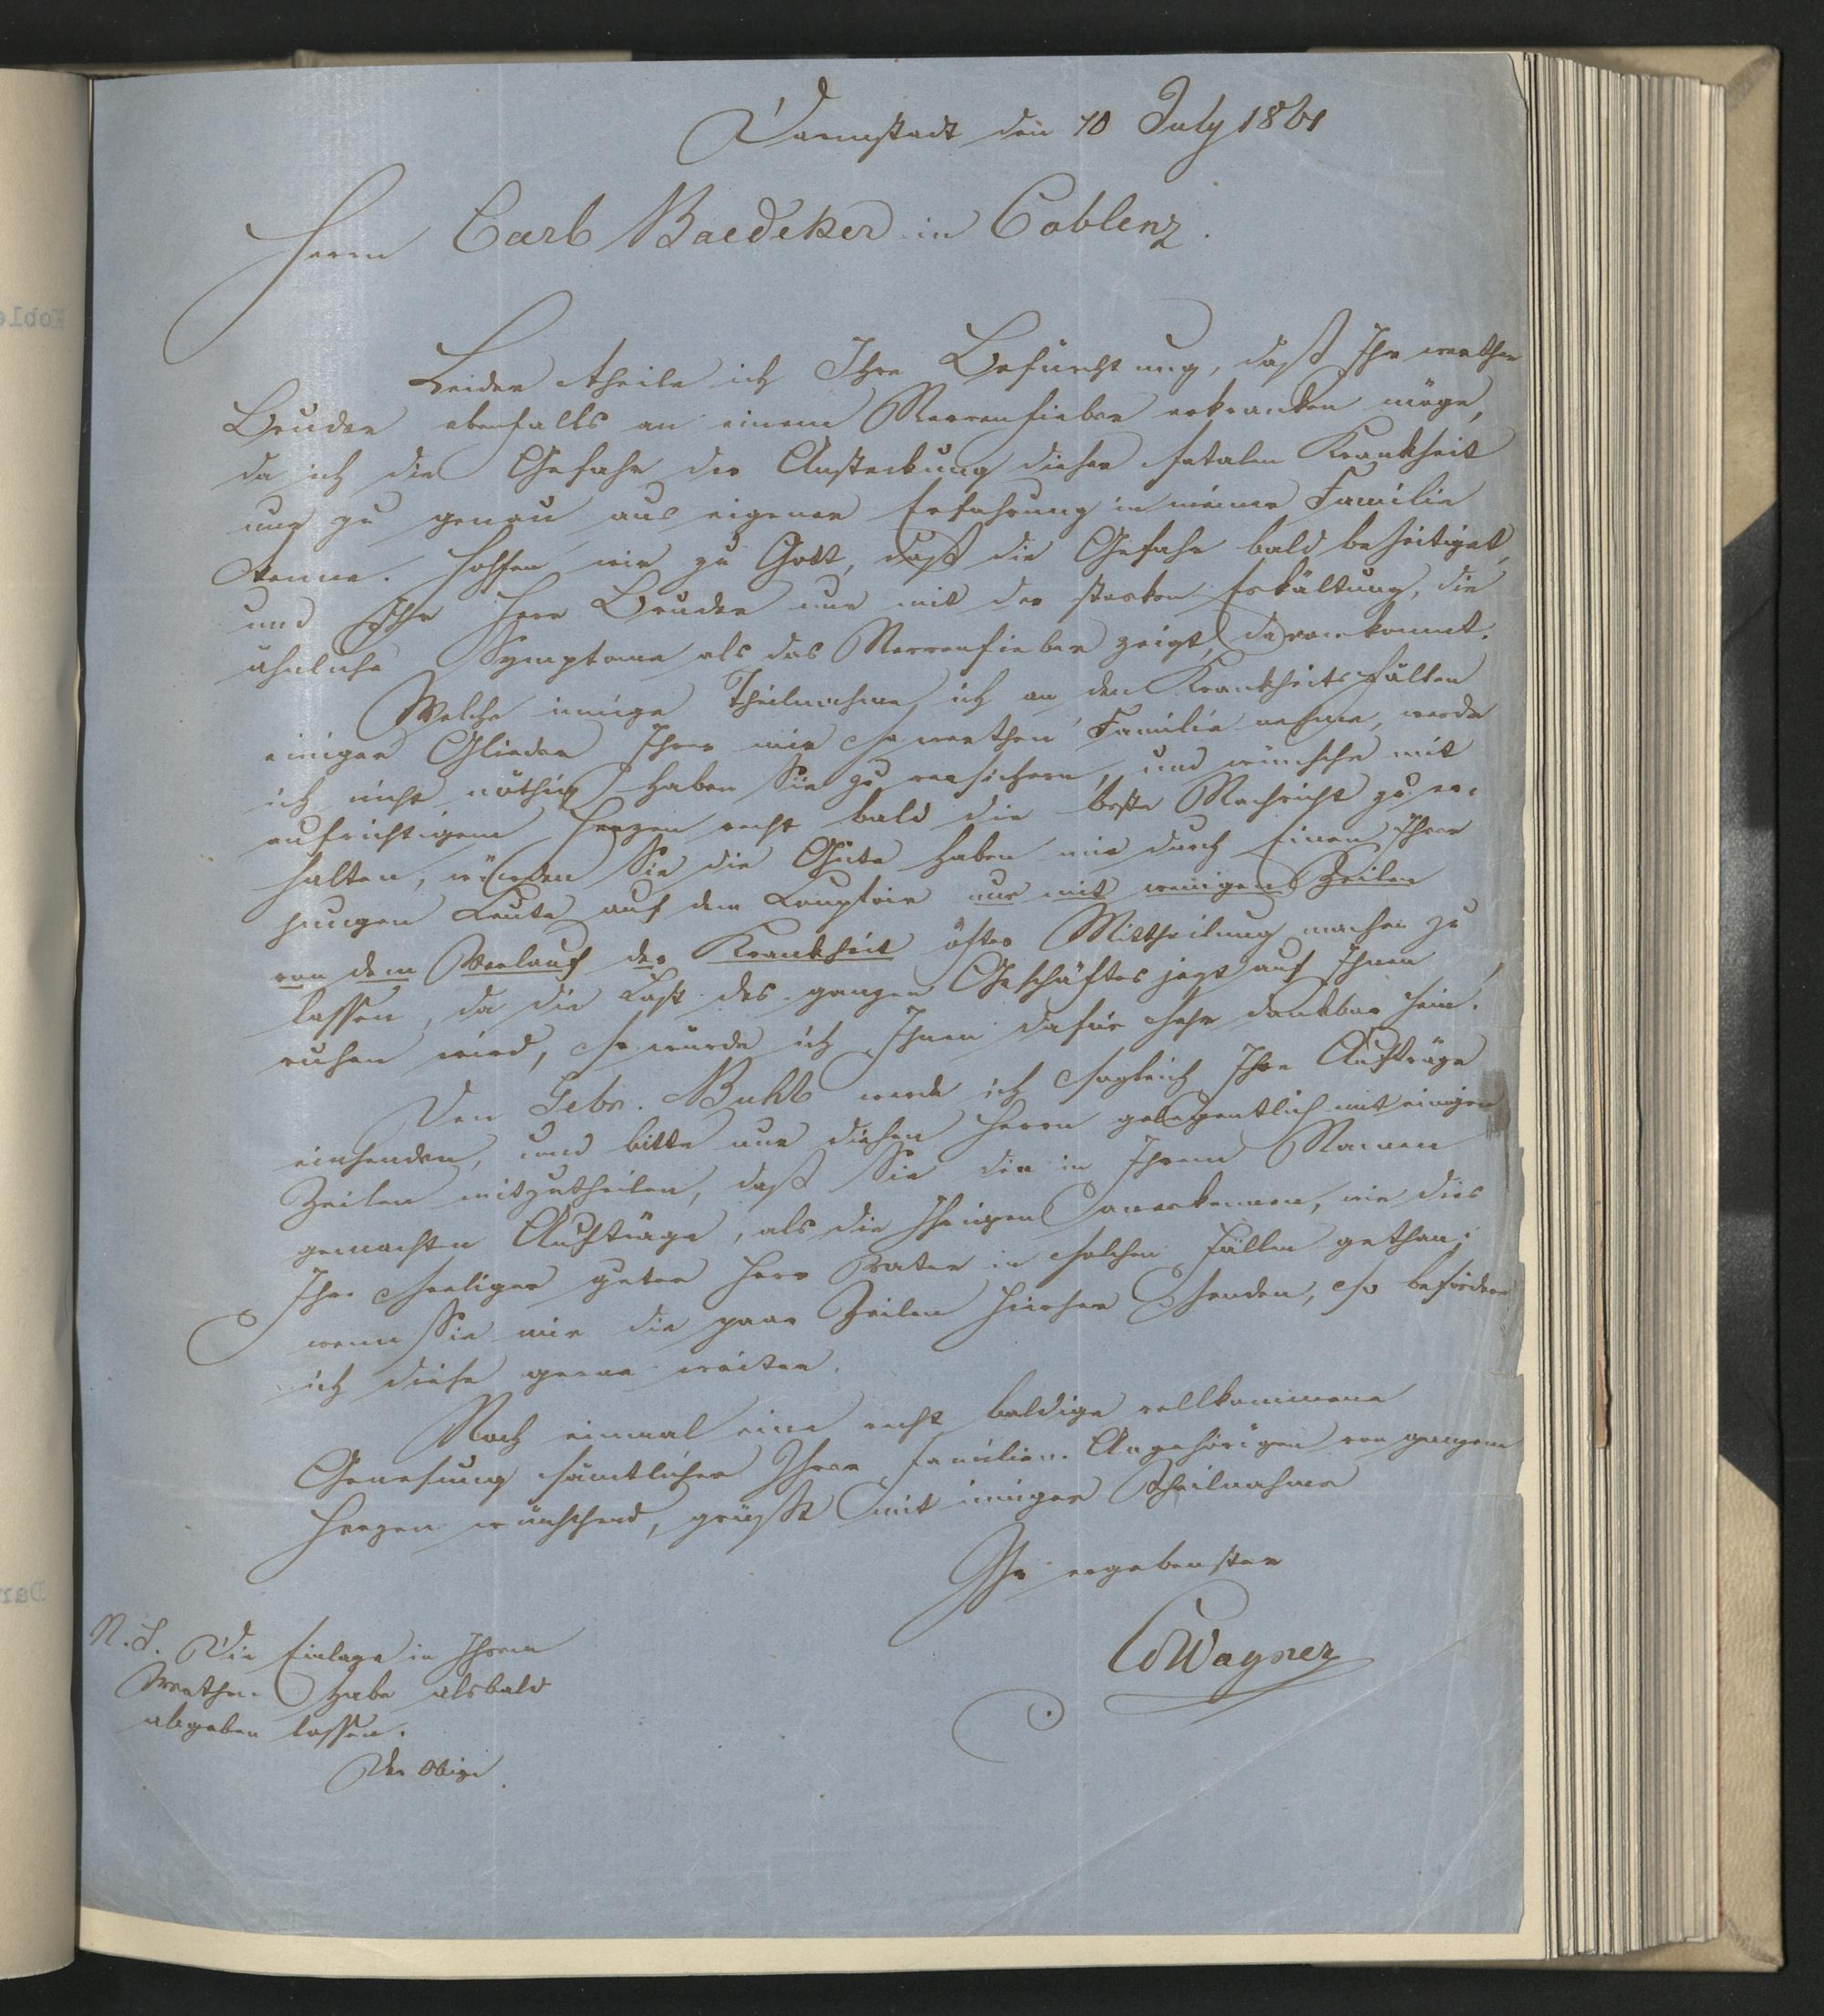 Darmstadt den 10 July 1861
Herrn Carl Baedeker in Coblenz.
Leider theile ich Ihre Befürchtung, daß Ihr werther
Bruder ebenfalls an einem Nervenfieber erkranken möge,
da ich die Gefahr der Ansteckung dieser fatalen Krankheit
nur zu genau aus eigener Erfahrung in meiner Familie
kenne. Hoffen wir zu Gott, daß die Gefahr bald beseitiget,
und Ihr Herr Bruder nur mit der starken Erkältung, die
ähnliche Symptome als das Nervenfieber zeigt, davon kommt.
Welche innige Theilnahme ich an den Krankheitsfällen
einiger Glieder Ihrer mir so werthen Familie nehme, werde
ich nicht nöthig haben Sie zu versichern, und wünsche mit
aufrichtigem Herzen recht bald die beste Nachricht zu er-
halten, würden Sie die Güte haben mir durch Einen Ihrer
jungen Leute auf dem Comptoir nur mit wenigen Zeilen
von dem Verlauf der Krankheit öfter Mittheilung machen zu
lassen, da die Last des ganzen Geschäftes jezt auf Ihnen
ruhen wird, so würde ich Ihnen dafür sehr dankbar sein.
Den Gebr. Buhl werde ich sogleich Ihre Aufträge
einsenden, und bitte nur diesen Herrn gelegentlich mit einigen
Zeilen mitzutheilen, daß Sie die in Ihrem Namen
gemachten Aufträge, als die Ihrigen anerkennen, wie dies
Ihr seeliger guter Herr Vater in solchen Fällen gethan;
wenn Sie mir die paar Zeilen hierher senden, so befördere
ich diese gerne weiter.
Noch einmal eine recht baldige vollkommene
Genesung sämtlicher Ihrer Familien-Angehörigen von ganzem
Herzen wünschend, grüßt mit inniger Theilnahme
Ihr ergebenster
CWagner
N.S. Die Einlage in Ihrem
Werthen habe alsbald
abgeben lassen.
Der Obige.